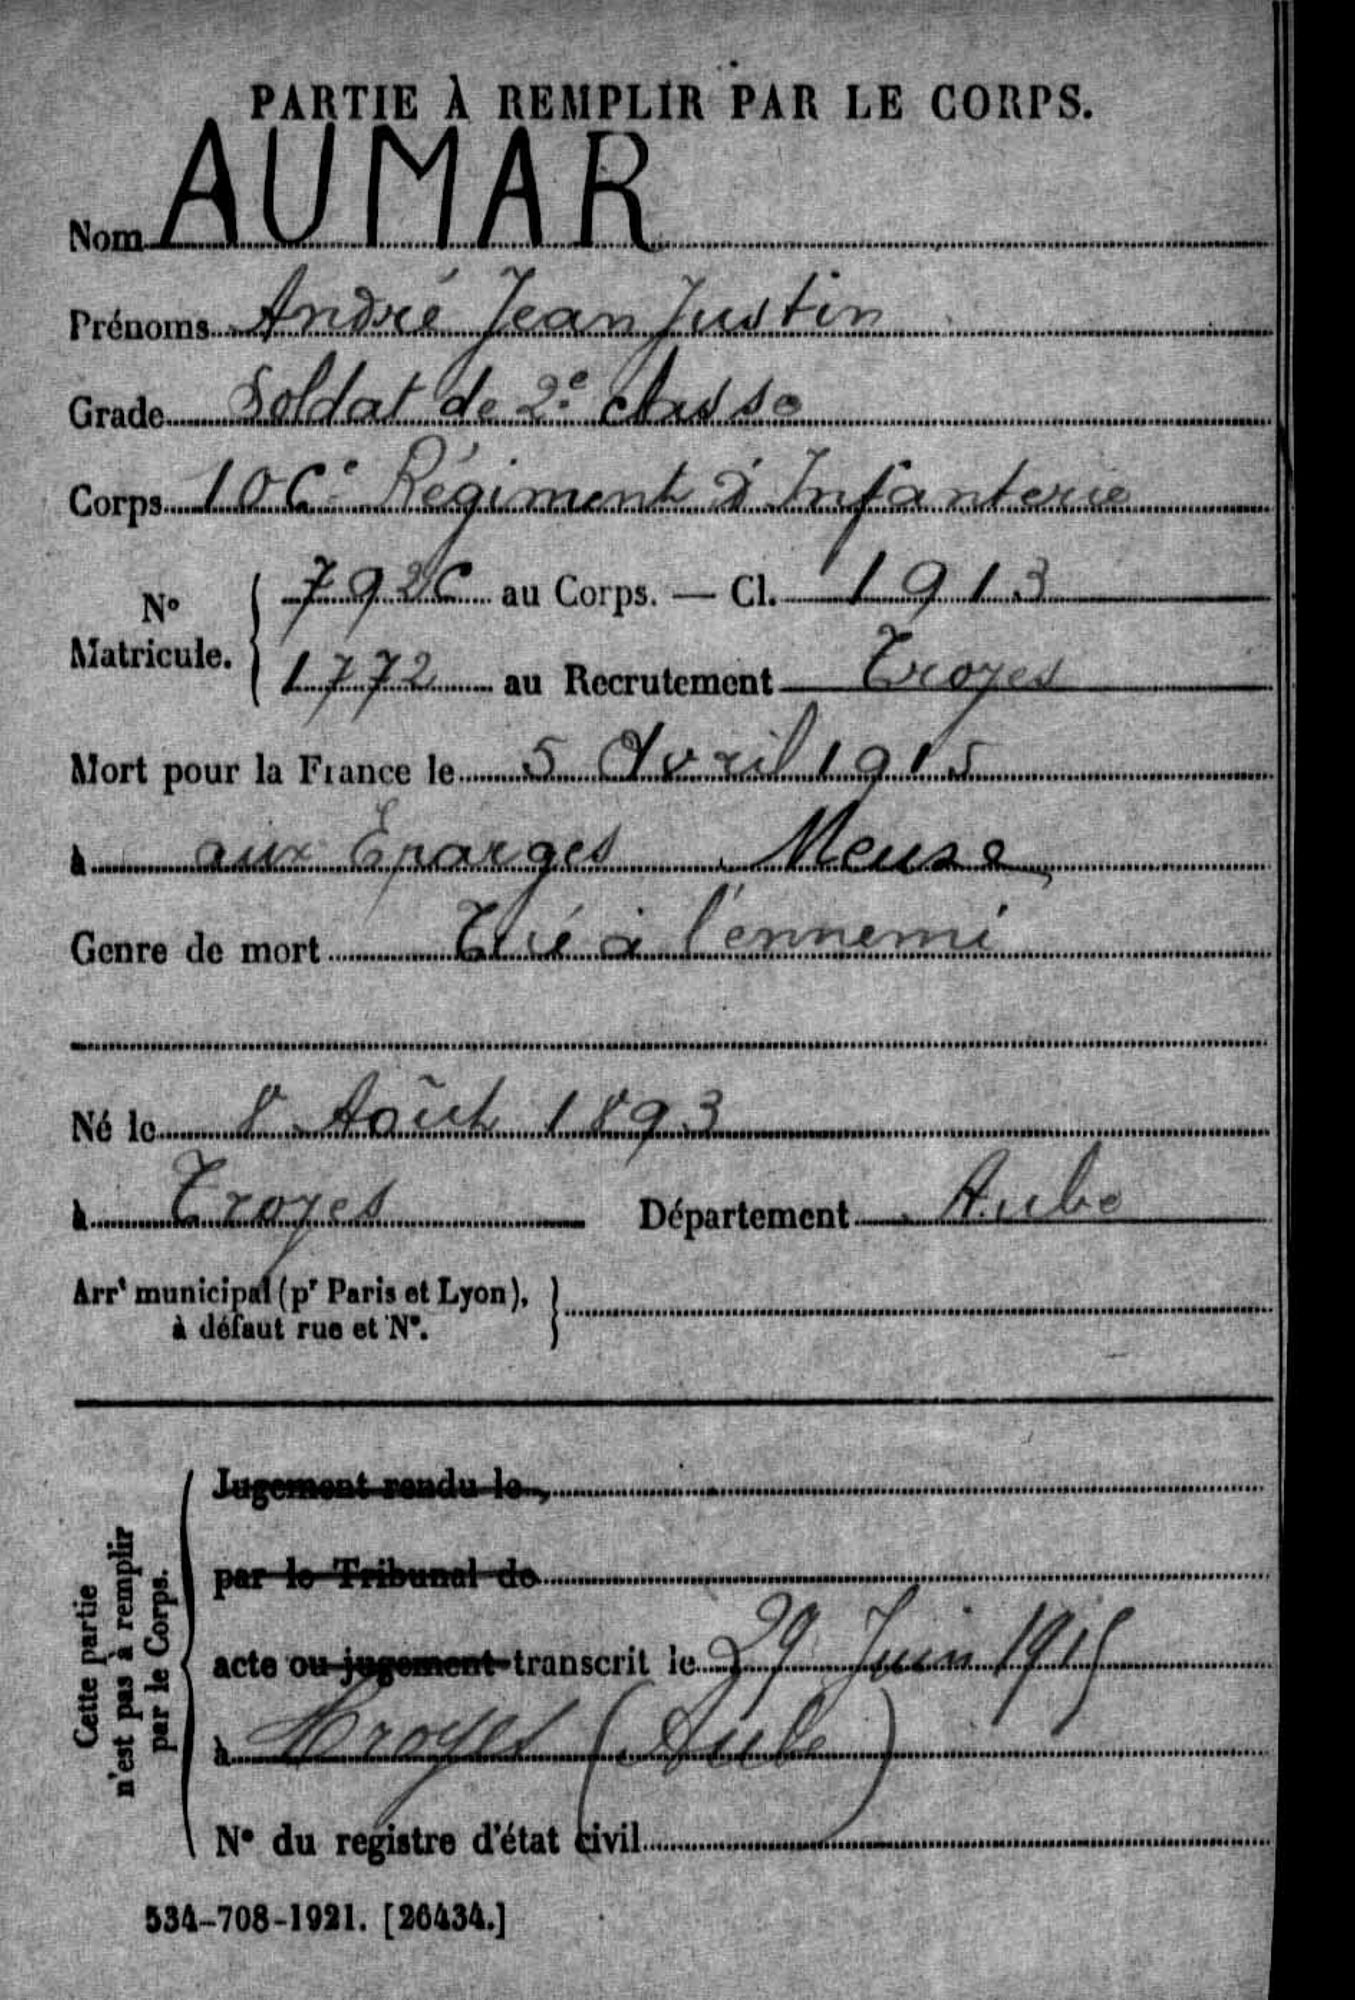 PARTIE À REMPLIR PAR LE CORPS.
Nom AUMAR
Prénoms André Jean Justin
Grade Soldat de 2e classe
Corps 106e Régiment d'Infanterie
N° Matricule. 7926 au Corps. — Cl. 1913
1772 au Recrutement Troyes
Mort pour la France le 5 Avril 1915
à aux Éparges Meuse
Genre de mort Tué à l'ennemi
Né le 8 Août 1893
à Troyes Département Aube
Arrt municipal (pr Paris et Lyon),
à défaut rue et N°.
Cette partie
n'est pas à remplir
par le Corps.
Jugement rendu le
par le Tribunal de
acte ou jugement transcrit le 29 Juin 1915
à Troyes (Aube)
N° du registre d'état civil
534-708-1921. [26434.]